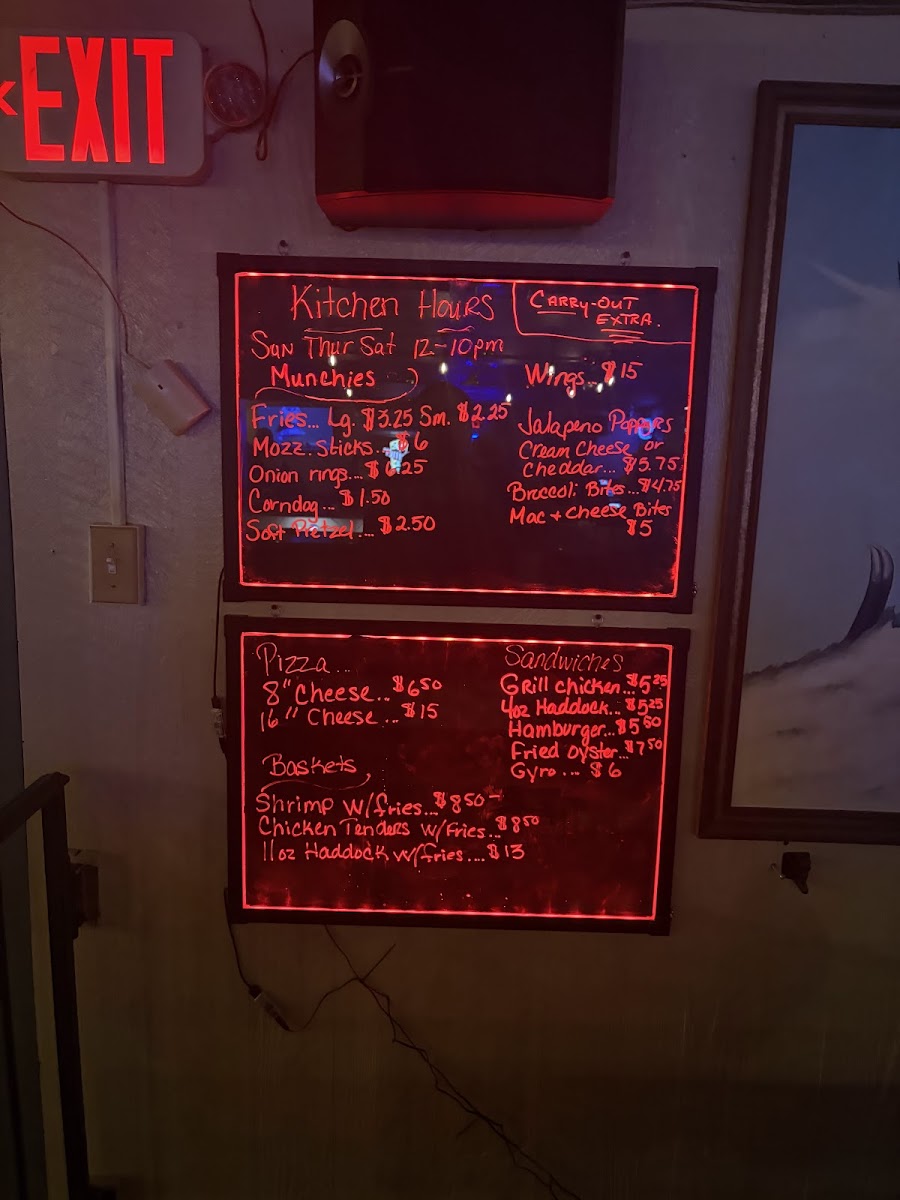 <EXIT
Kitchen Hours
CARRY-OUT
EXTRA.
Sun Thur Sat 12-10pm
Munchies
Fries... Lg. $3.25 Sm. $2.25
Mozz. Sticks... $6
Onion rings... $6.25
Corndog... $1.50
Soft Pretzel.... $2.50
Wings... $15
Jalapeno Poppers
Cream Cheese or
Cheddar... $5.75
Broccoli Bites... $4.75
Mac + Cheese Bites
$5
Pizza...
8" Cheese... $6.50
16" Cheese... $15
Baskets
Shrimp w/fries... $8.50
Chicken Tenders w/fries... $8.50
11oz Haddock w/fries.... $13
Sandwiches
Grill chicken... $5.25
4oz Haddock... $5.25
Hamburger... $5.50
Fried oyster... $7.50
Gyro... $6